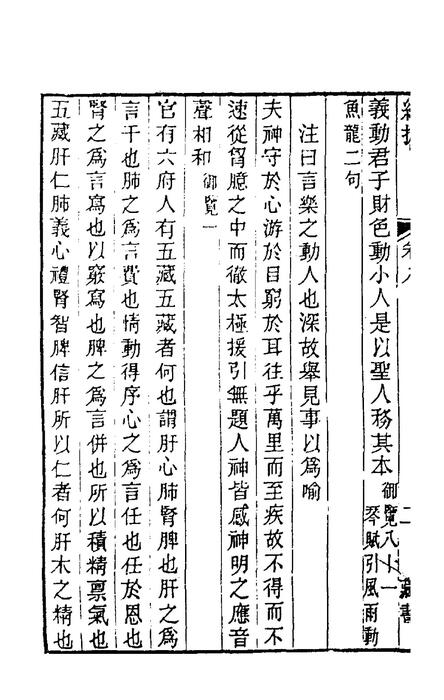 卷八
二
義動君子財色動小人是以聖人務其本
御覽八十一
琴賦引風雨動
魚龍二句
注曰言樂之動人也深故舉見事以爲喻
夫神守於心游於目窮於耳往乎萬里而至疾故不得而不
速從胷臆之中而徹太極援引無題人神皆感神明之應音
聲相和 御覽一
官有六府人有五藏五藏者何也謂肝心肺腎脾也肝之爲
言干也肺之爲言費也情動得序心之爲言任也任於恩也
腎之爲言寫也以竅寫也脾之爲言併也所以積精禀氣也
五藏肝仁肺義心禮腎智脾信肝所以仁者何肝木之精也